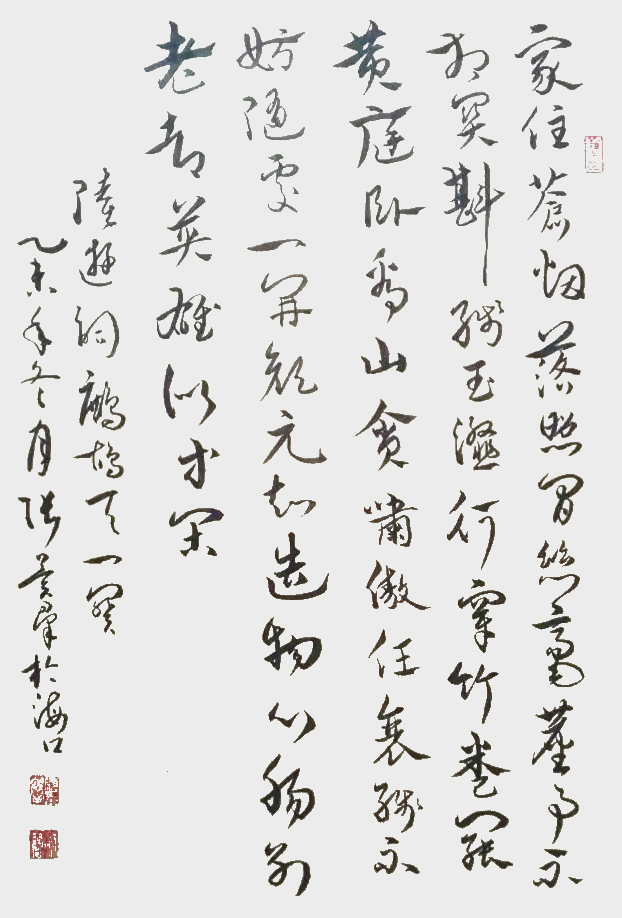 家住蒼烟落照間絲毫塵事不
相関斟残玉瀣行穿竹卷罷
黄庭卧看山貪嘯傲任衰残不
妨随處一開颜元知造物心肠别
老却英雄似等閑
陸遊詞鷓鴣天一闋
乙未年冬月 群於海口